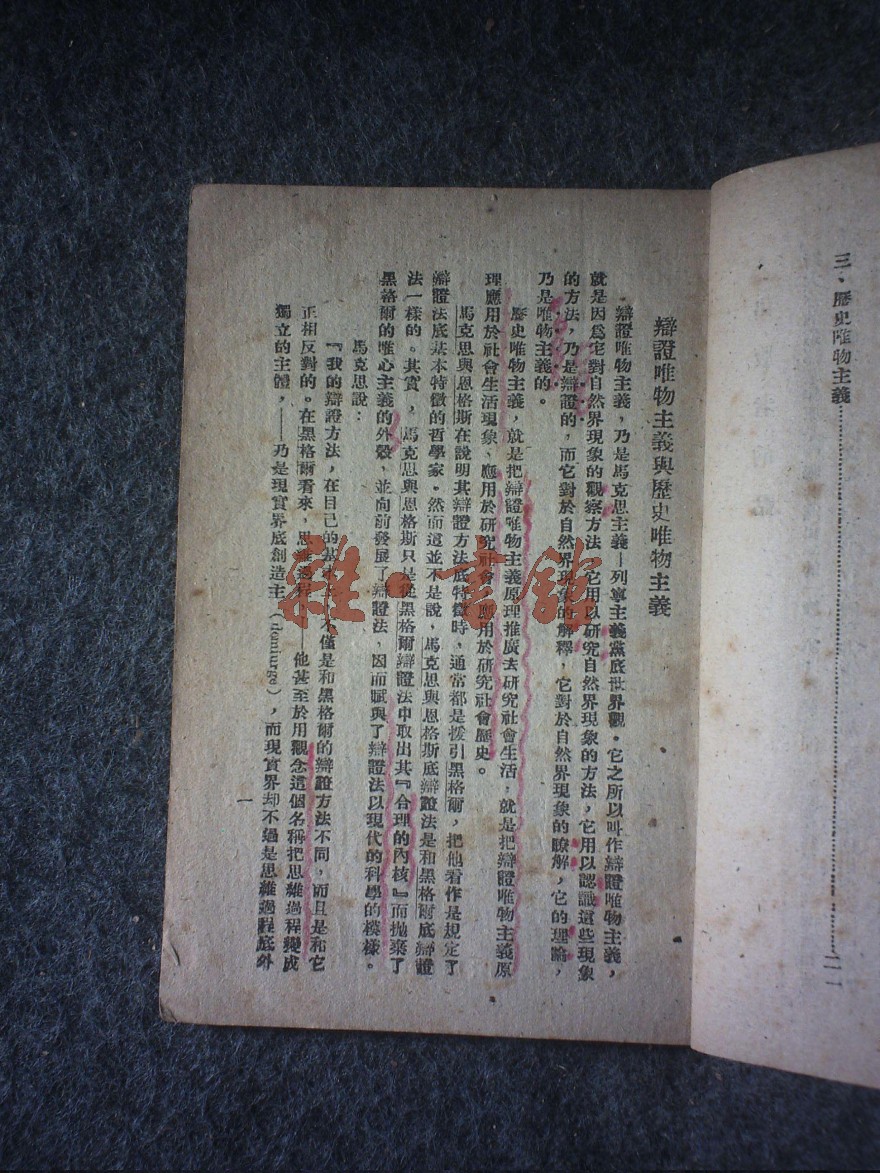 三、歷史唯物主義……………………………二一
辯證唯物主義與歷史唯物主義
辯證唯物主義，乃是馬克思主義—列寧主義黨底世界觀。它之所以叫作辯證唯物主義，
就是因爲它對自然界現象的觀察方法，它用以研究自然界現象的方法，它用以認識這些現象
的方法，乃是辯證的，而它對於自然界現象的解釋，它對於自然界現象的瞭解，它的理論，
乃是唯物主義的。
歷史唯物主義，就是把辯證唯物主義原理推廣去研究社會生活，就是把辯證唯物主義原
理應用於社會生活現象，應用於研究社會，應用於研究社會歷史。
馬克思與恩格斯在說明其辯證方法底特徵時，通常都是援引黑格爾，把他看作是規定了
辯證法底基本特徵的哲學家。然而這並不是說，馬克思與恩格斯底辯證法是和黑格爾底辯證
法一樣的。其實，馬克思與恩格斯只是從黑格爾辯證法中取出其『合理的內核』而拋棄了
黑格爾的唯心主義的外殼，並向前發展了辯證法，因而賦與了辯證法以現代的科學的模樣。
馬克思說：
『我的辯證方法，在自己的基本上不僅是和黑格爾的辯證方法不同，而且是和它
正相反對的。在黑格爾看來，思維過程——他甚至於用觀念這個名稱把思維過程變成
獨立的主體，——乃是現實界底創造主（demiurge），而現實界却不過是思維過程底外
一
雜·書館